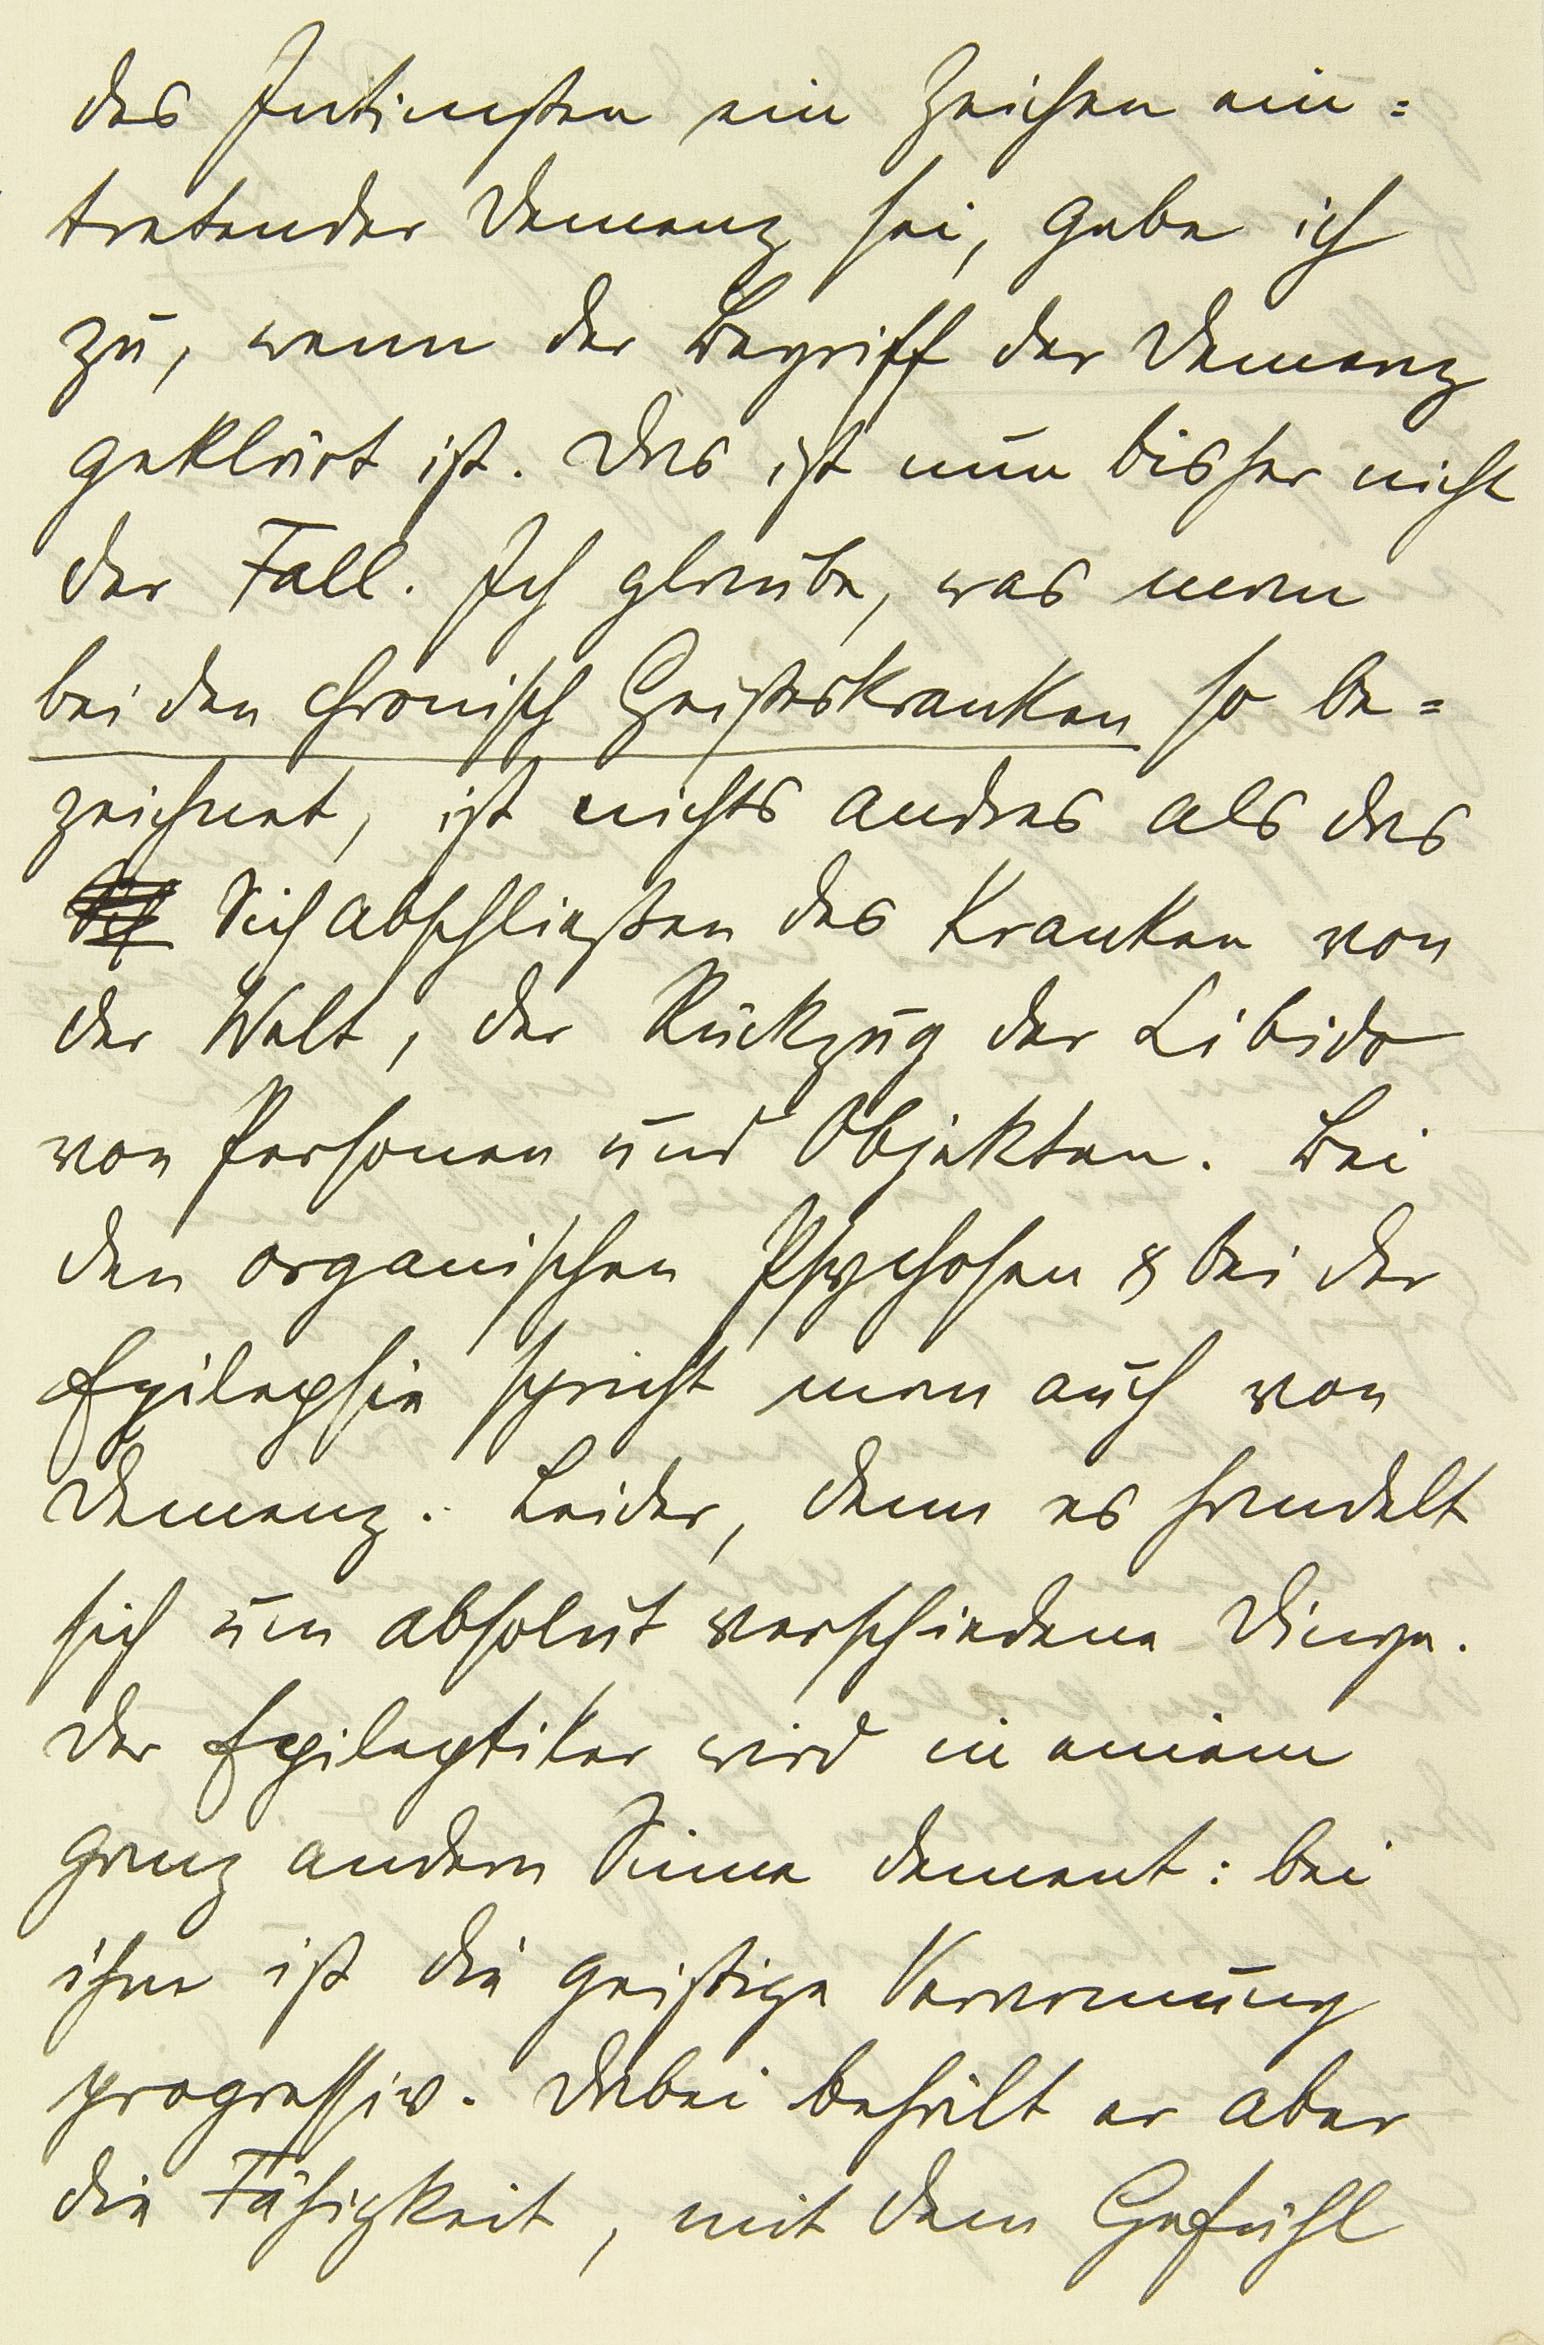 des Intimsten ein Zeichen ein=
tretender Demenz sei, gebe ich
zu, wenn der Begriff der Demenz
geklärt ist. Das ist nun bisher nicht
der Fall. Ich glaube, was man
bei den chronisch Geisteskranken so be=
zeichnet, ist nichts andres als das
Sich Sich abschließen des Kranken von
der Welt, der Rückzug der Libido
von Personen und Objekten. Bei
den organischen Psychosen & bei der
Epilepsie spricht man auch von
Demenz. Leider, denn es handelt
sich um absolut verschiedene Dinge.
Der Epileptiker wird in einem
ganz andern Sinne dement: bei
ihm ist die geistige Verarmung
progressiv. Dabei behält er aber
die Fähigkeit, mit dem Gefühl